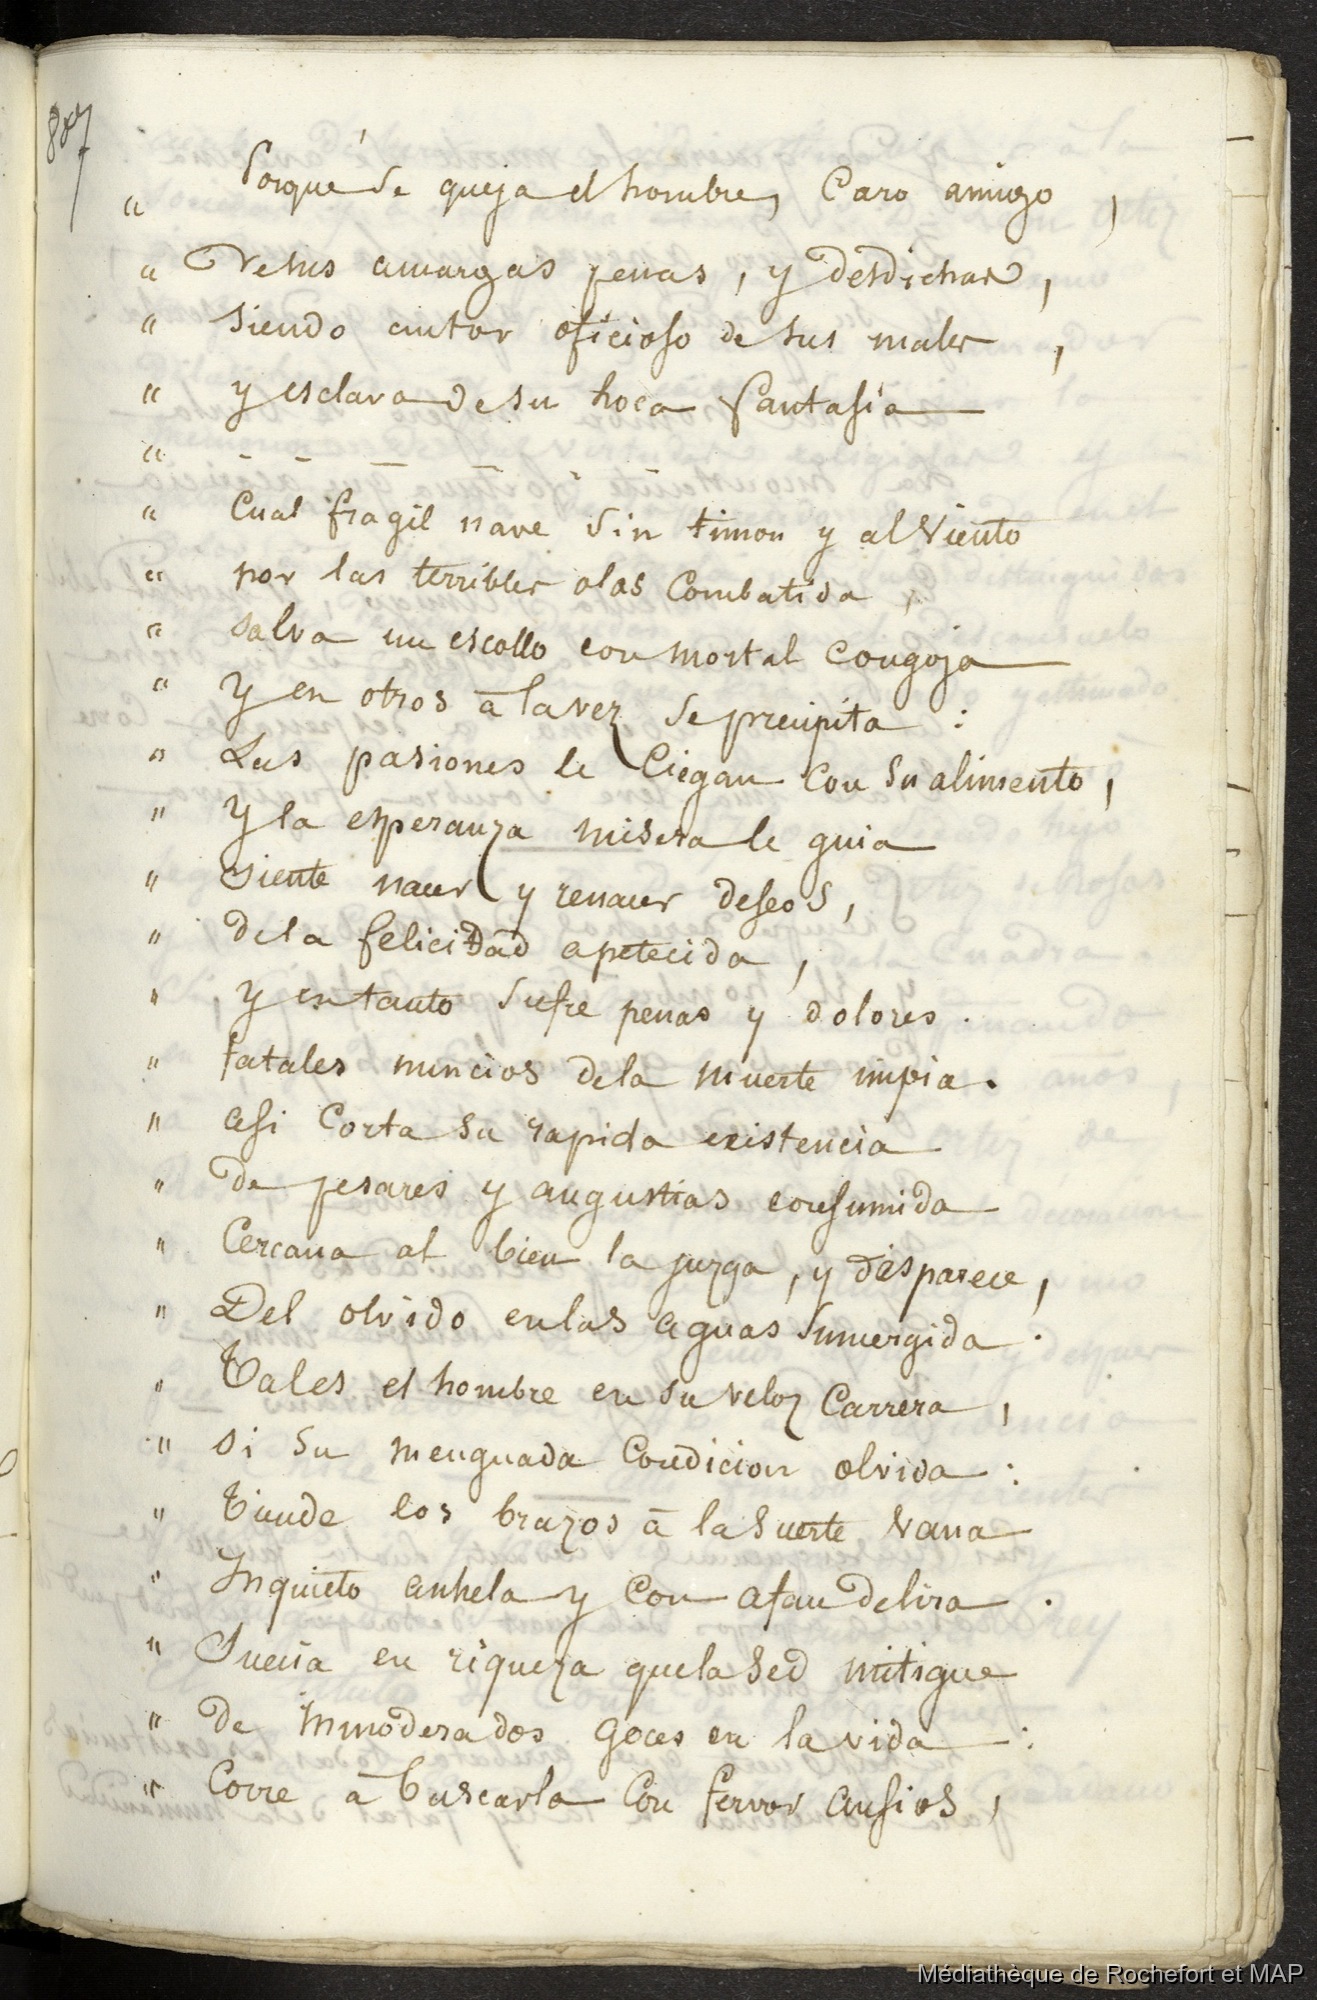 887
" Porqué se queja el hombre, Caro amigo,
" De sus amargas penas, y desdichas,
" siendo autor oficioso de sus males,
" y esclavo de su hoca fantasía
" _ _ _ _ _ _ _
" Cual fragil nave sin timon y al Viento
" por las terribles olas Combatida,
" salva un escollo con mortal congoja
" Y en otros à la vez se precipita :
" Las pasiones le Ciegan con su alimento,
" Y la esperanza misera le guia
" siente nacer y renacer deseos,
" dela felicidad apetecida,
" y entanto sufre penas y dolores.
" fatales nuncios dela muerte impia.
" asi Corta su rapida existencia
" de pesares y angustias consumida
" Cercana al bien la juzga, y disparece,
" Del olvido enlas aguas sumergida.
" Tal es el hombre en su veloz Carrera,
" si su menguada Condicion olvida :
" Tiende los brazos à la suerte vana
" Inquieto anhela y con afan delira.
" Sueña en riqueza quela sed mitigue
" de inmoderados goces en la vida :
" Corre à buscarla con fervor ansios,
Médiathèque de Rochefort et MAP